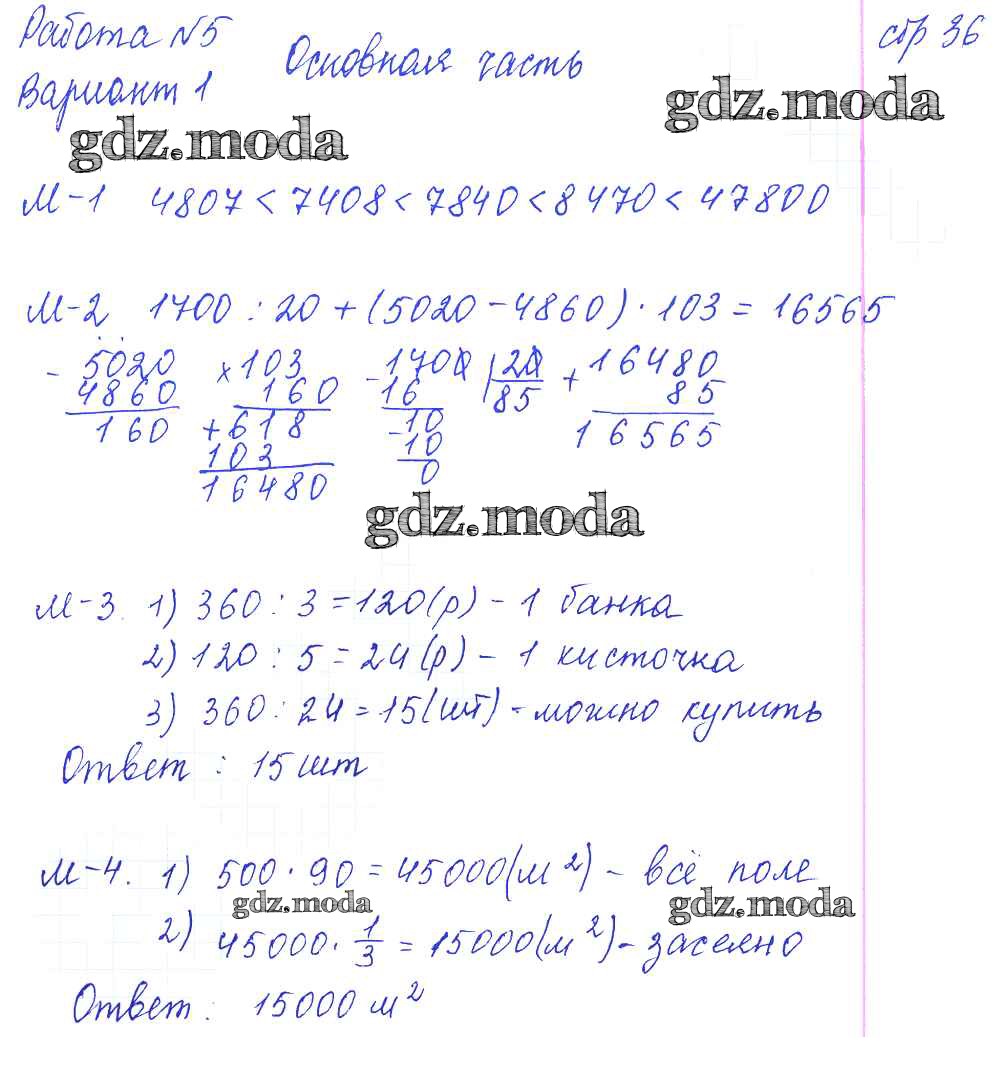 Работа №5
Основная часть
стр 36
Вариант 1
gdz.moda
gdz.moda
М-1 4807 < 7408 < 7840 < 8470 < 47800
М-2 1700 : 20 + (5020 - 4860) · 103 = 16565
- 5020
4860
160
x 103
160
+ 618
103
16480
- 1700 | 20
16 85
- 10
10
0
+ 16480
85
16565
gdz.moda
М-3. 1) 360 : 3 = 120 (р) - 1 банка
2) 120 : 5 = 24 (р) - 1 кисточка
3) 360 : 24 = 15 (шт) - можно купить
Ответ : 15 шт
М-4. 1) 500 · 90 = 45000 (м²) - всё поле
gdz.moda
gdz.moda
2) 45000 · 1/3 = 15000 (м²) - засеяно
Ответ : 15000 м²